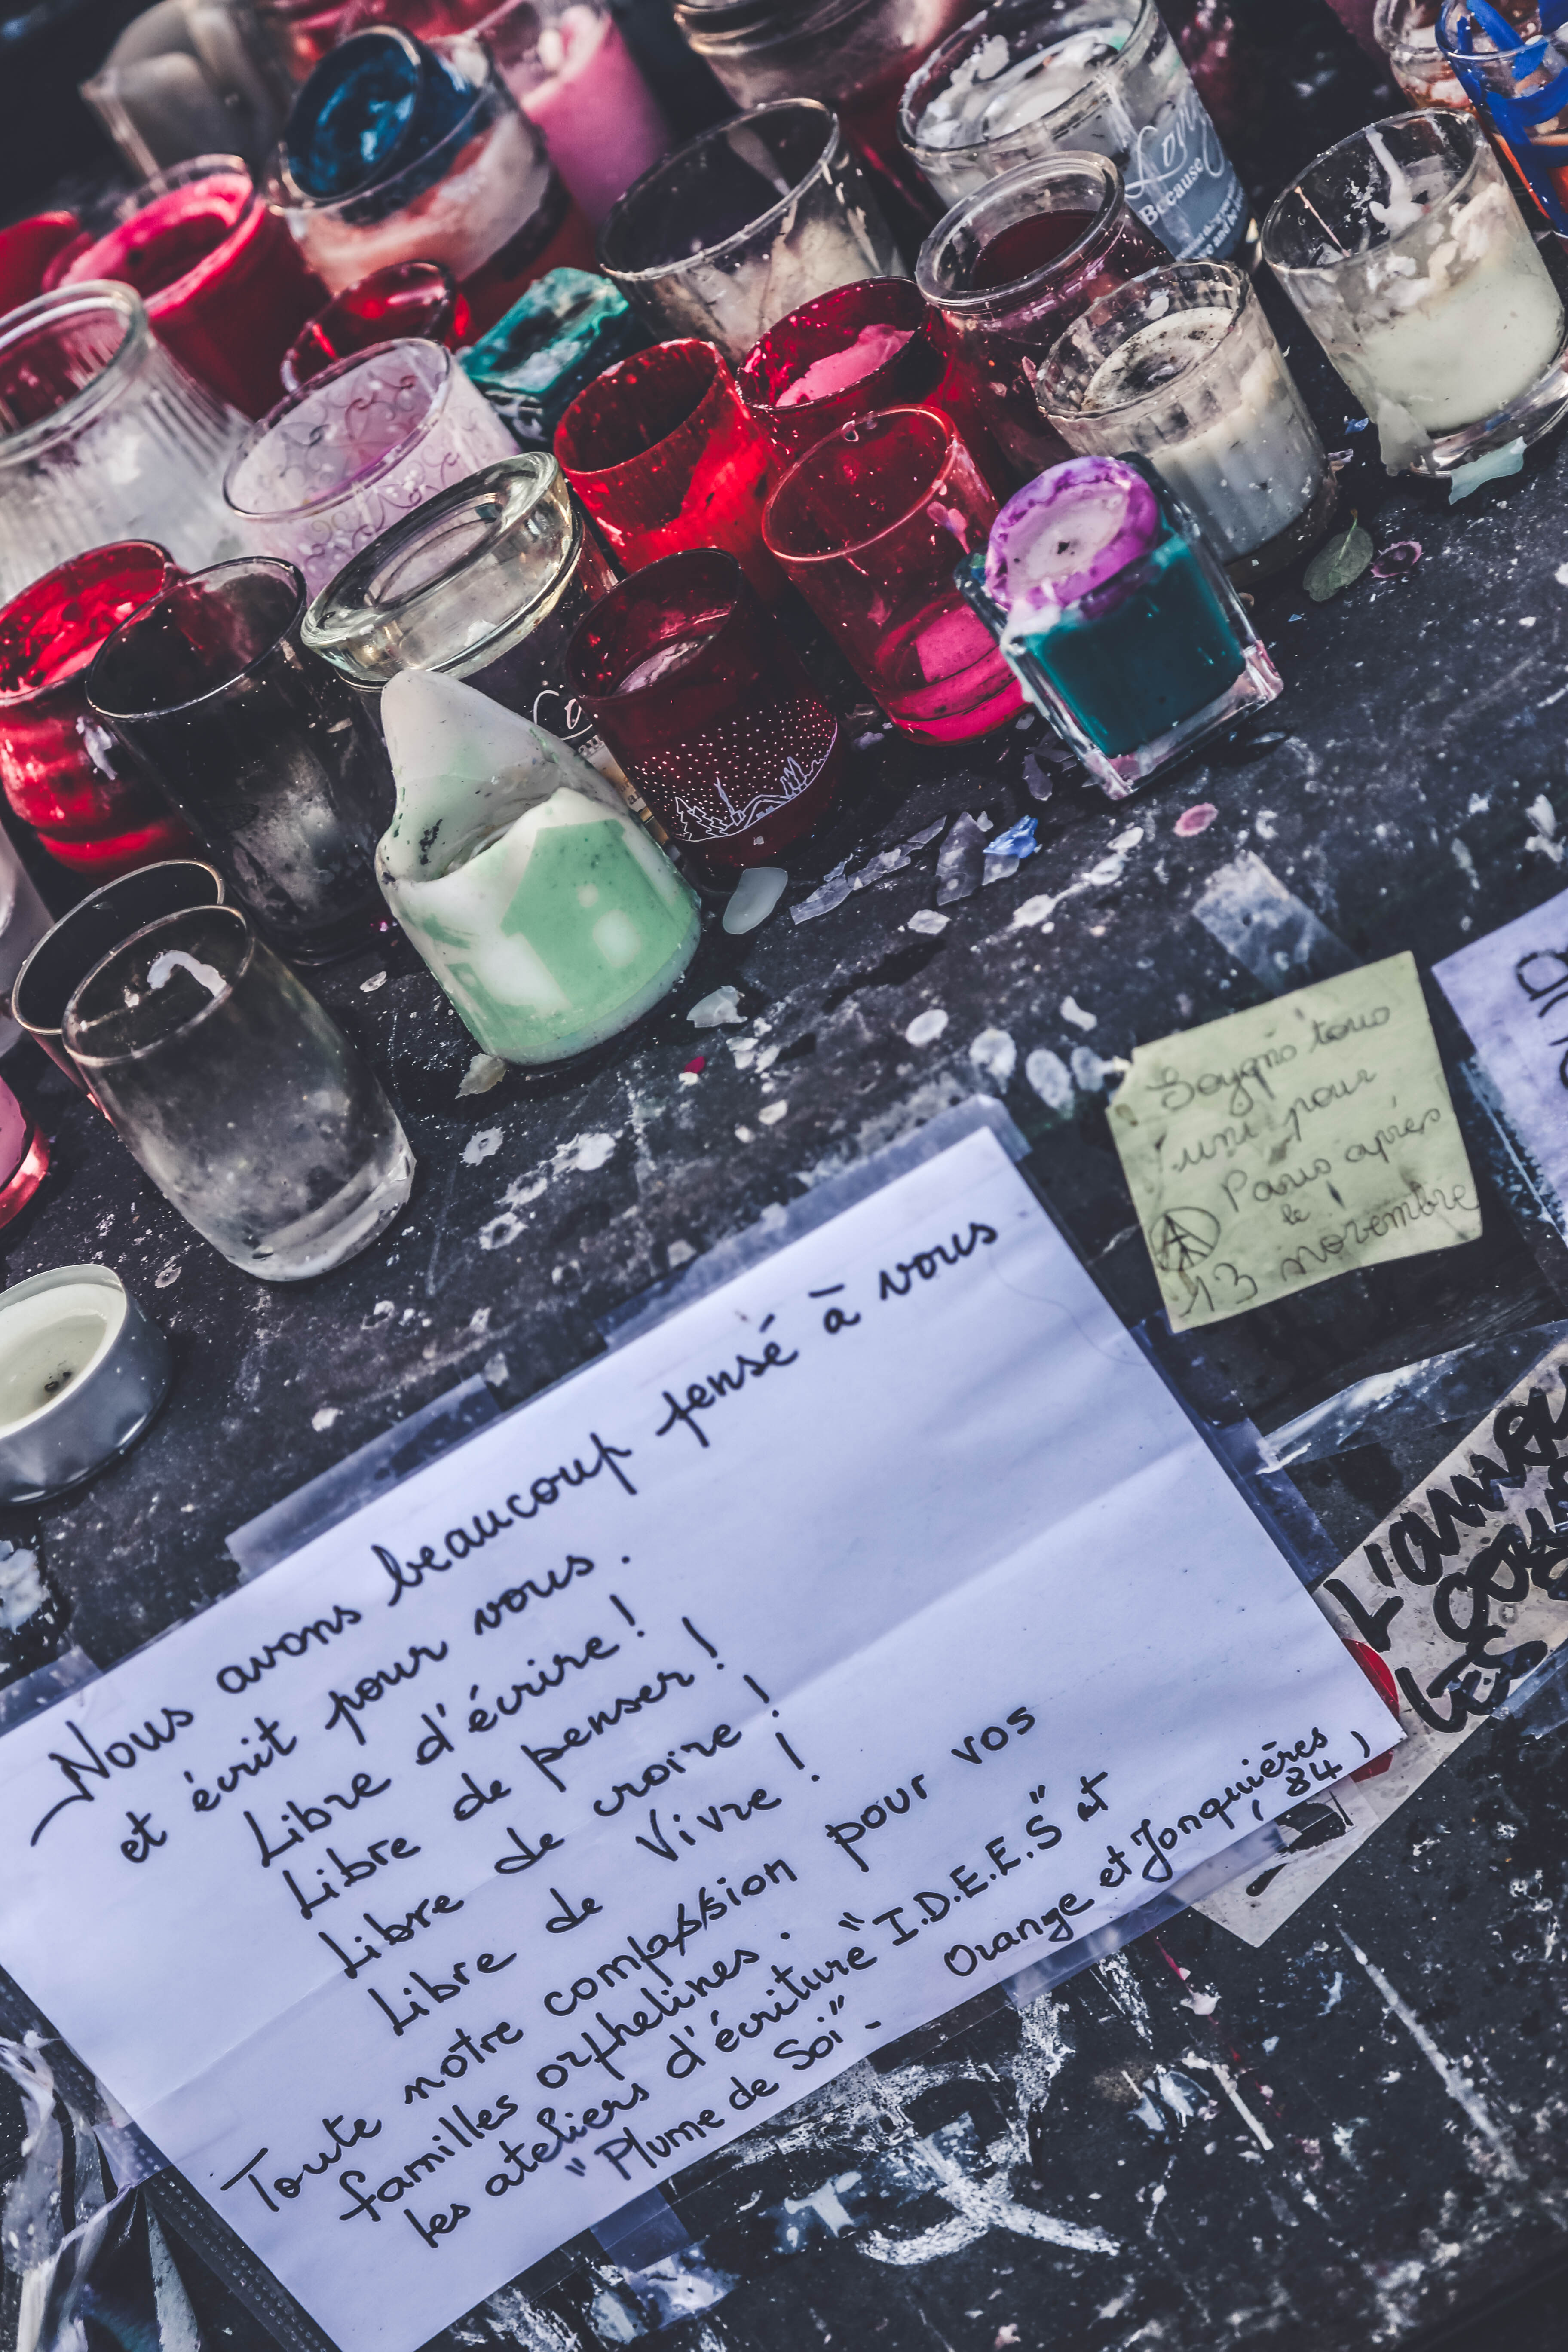 Because
Soyons tous
uni pour
Paris après
le
13 novembre
L'amou
LES
Nous avons beaucoup pensé à vous
et écrit pour vous.
Libre d'écrire !
Libre de penser !
Libre de croire !
Libre de Vivre !
Toute notre compassion pour vos
familles orphelines.
les ateliers d'écriture "I.D.E.E.S" et
"Plume de Soi". Orange et Jonquières
(84)